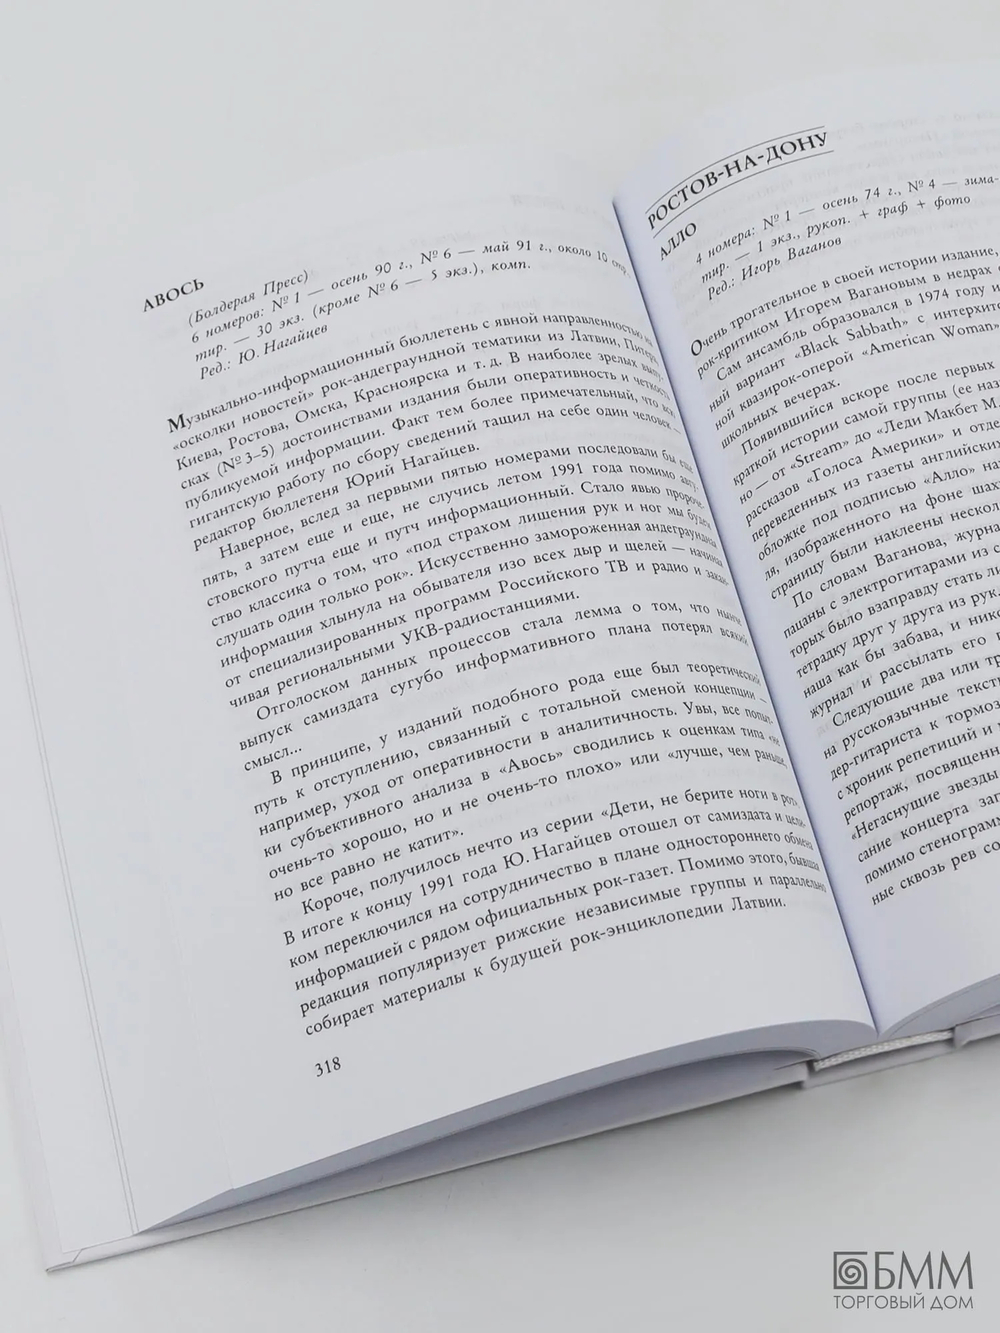 АВОСЬ
(Болдерая Пресс)
6 номеров: № 1 — осень 90 г., № 6 — май 91 г., около 10 стр.,
тир. — 30 экз. (кроме № 6 — 5 экз.), комп.
Ред.: Ю. Нагайцев
Музыкально-информационный бюллетень с явной направленностью на
«осколки новостей» рок-андеграундной тематики из Латвии, Питера,
Киева, Ростова, Омска, Красноярска и т. д. В наиболее зрелых выпу-
сках (№ 3–5) достоинствами издания были оперативность и четкость
публикуемой информации. Факт тем более примечательный, что всю
гигантскую работу по сбору сведений тащил на себе один человек —
редактор бюллетеня Юрий Нагайцев.
Наверное, вслед за первыми пятью номерами последовали бы еще
пять, а затем еще и еще, не случись летом 1991 года помимо авгу-
стовского путча еще и путч информационный. Стало явью пророче-
ство классика о том, что «под страхом лишения рук и ног мы будем
слушать один только рок». Искусственно замороженная андеграундная
информация хлынула на обывателя изо всех дыр и щелей — начиная
от специализированных программ Российского ТВ и радио и закан-
чивая региональными УКВ-радиостанциями.
Отголоском данных процессов стала лемма о том, что нынче
выпуск самиздата сугубо информативного плана потерял всякий
смысл...
В принципе, у изданий подобного рода еще был теоретический
путь к отступлению, связанный с тотальной сменой концепции —
например, уход от оперативности в аналитичность. Увы, все попыт-
ки субъективного анализа в «Авось» сводились к оценкам типа «не
очень-то хорошо, но и не очень-то плохо» или «лучше, чем раньше,
но все равно не катит».
Короче, получилось нечто из серии «Дети, не берите ноги в рот».
В итоге к концу 1991 года Ю. Нагайцев отошел от самиздата и цели-
ком переключился на сотрудничество в плане одностороннего обмена
информацией с рядом официальных рок-газет. Помимо этого, бывшая
редакция популяризует рижские независимые группы и параллельно
собирает материалы к будущей рок-энциклопедии Латвии.
318
РОСТОВ-НА-ДОНУ
АЛЛО
4 номера: № 1 — осень 74 г., № 4 — зима-
тир. — 1 экз., рукоп. + граф + фото
Ред.: Игорь Ваганов
Очень трогательное в своей истории издание,
рок-критиком Игорем Вагановым в недрах
Сам ансамбль образовался в 1974 году и
ный вариант «Black Sabbath» с интерхит
ной квазирок-оперой «American Woman»
школьных вечерах.
Появившийся вскоре после первых
краткой истории самой группы (ее наз
но — от «Stream» до «Леди Макбет М.
рассказов «Голоса Америки» и отде
переведенных из газеты английских
обложке под подписью «Алло» на
ля, изображенного на фоне шах
страницу были наклеены нескол
По словам Ваганова, журна
пацаны с электрогитарами из с
торых было взаправду стать ли
тетрадку друг у друга из рук.
наша как бы забава, и ник
журнал и рассылать его п
Следующие два или тр
на русскоязычные текст
дер-гитариста к тормоз
с хроник репетиций и
репортаж, посвященн
«Негаснущие звезды
сание концерта зап
помимо стенограмм
ные сквозь рев со
БММ
ТОРГОВЫЙ ДОМ